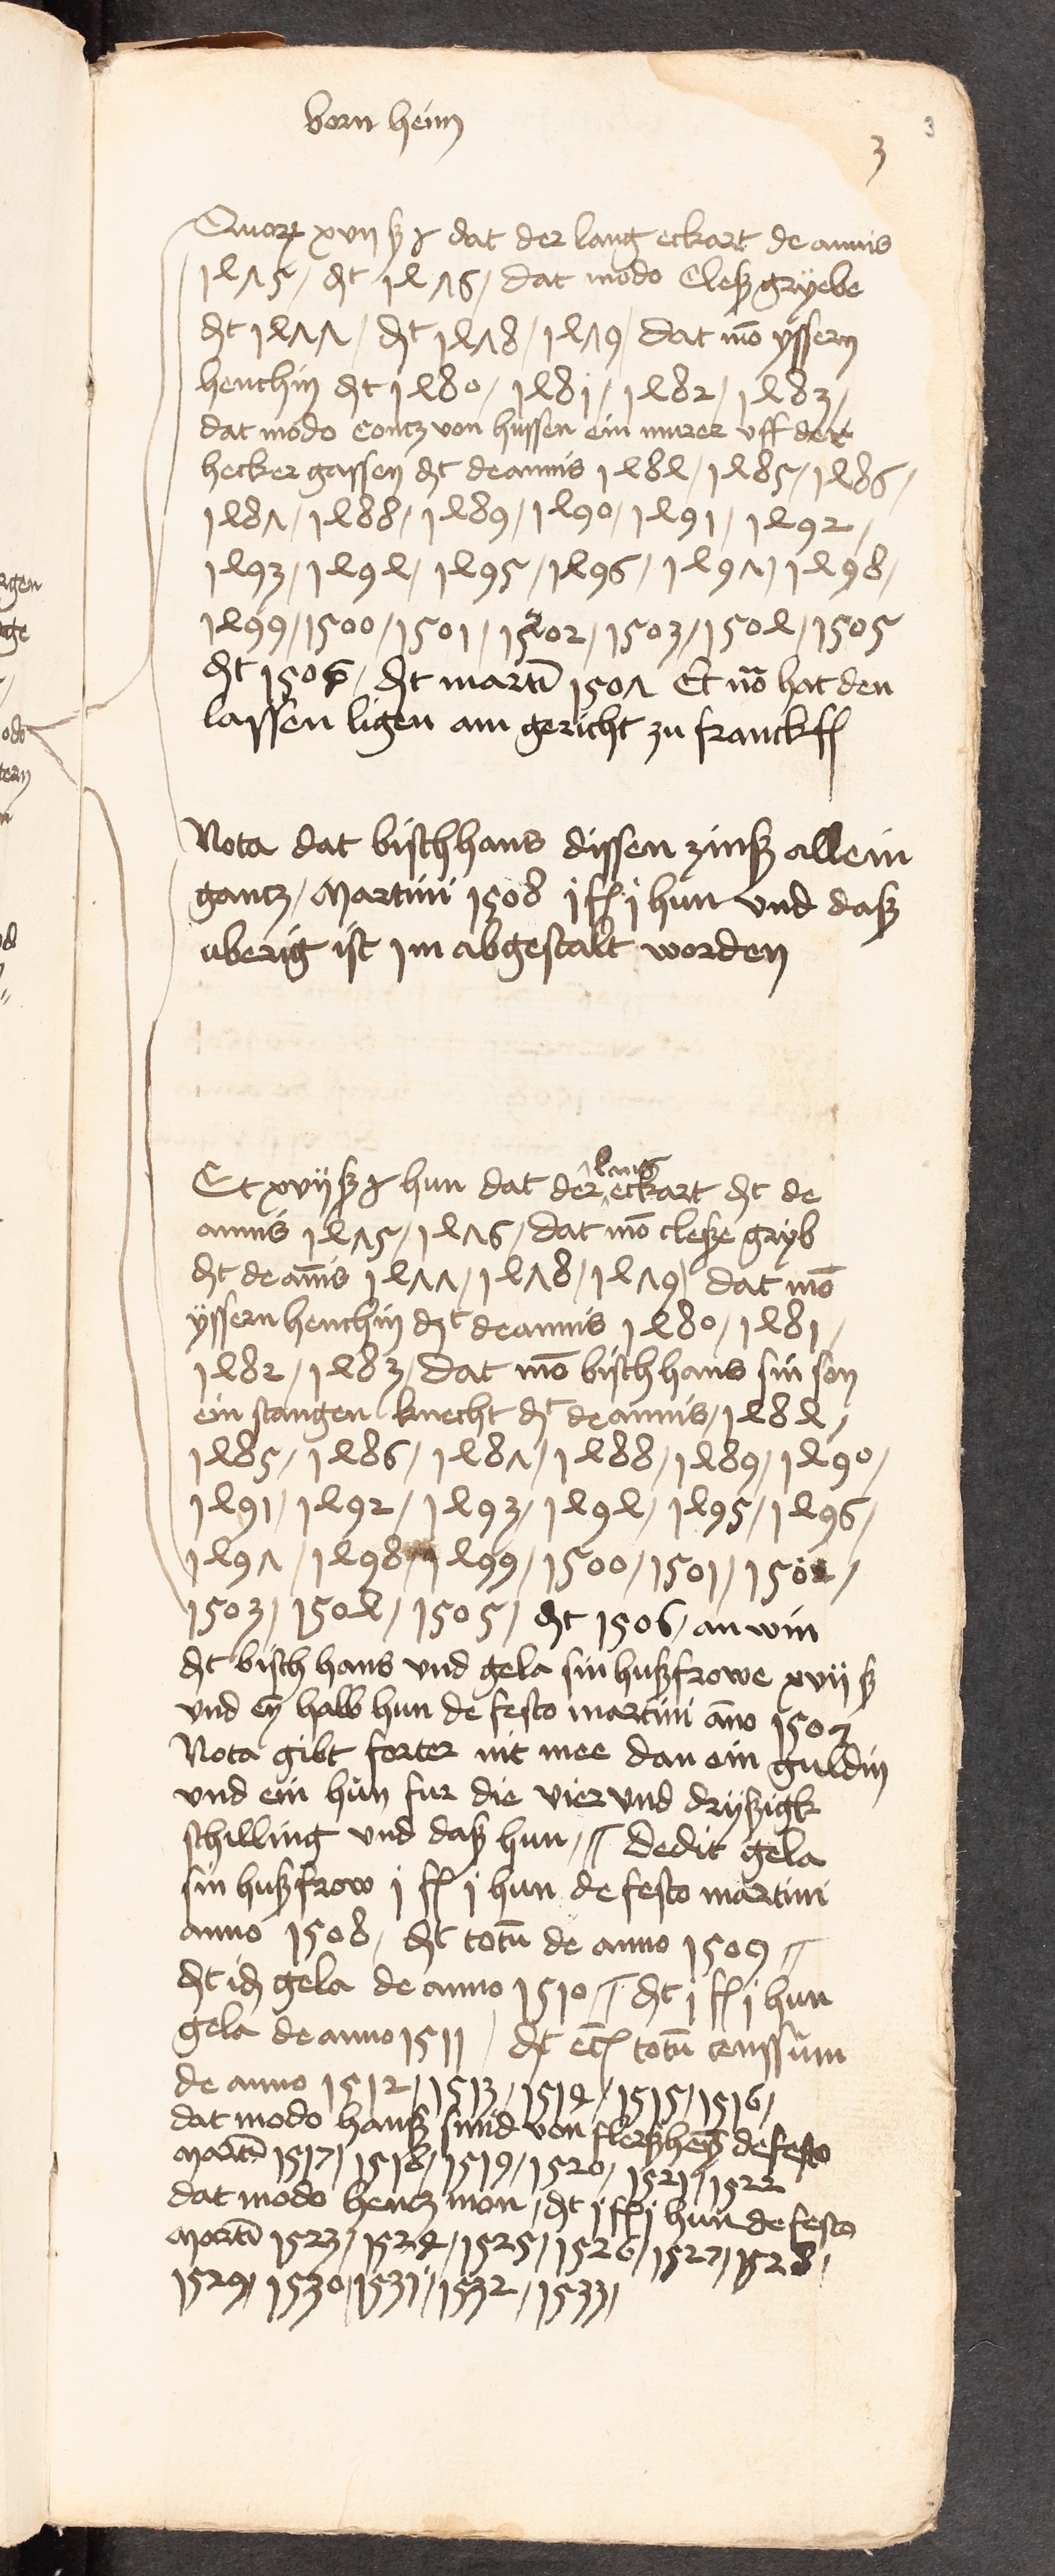 born heim
3
3
Quorum xvij ß dat der lang eckart de annis
1475 / dt 1476 / dat modo Cleß gryebe
dt 1477 / dt 1478 / 1479 / dat mo yssern
henchin dt 1480 / 1481 / 1482 / 1483 /
dat modo Contz von hussen ein murer uff der
hecker gassen dt de annis 1484 / 1485 / 1486 /
1487 / 1488 / 1489 / 1490 / 1491 / 1492 /
1493 / 1494 / 1495 / 1496 / 1497 / 1498 /
1499 / 1500 / 1501 / 1502 / 1503 / 1504 / 1505
dt 1506 / dt martī 1507 Et mo hat den
lassen ligen am gericht zu franckf
Nota dat bisch hans dissen zinß allein
gantz / Martini 1508 j fl j hun vnd daß
uberig ist jm abgestalt worden
Et xvij ß hun dat der lang eckart dt de
annis 1475 / 1476 / dat mo cleße gryb
dt de annis 1477 / 1478 / 1479 / dat mō
yssern henchin dt de annis 1480 / 1481 /
1482 / 1483 / dat mō bisch hans sin son
ein stangen knecht dt de annis / 1484 /
1485 / 1486 / 1487 / 1488 / 1489 / 1490 /
1491 / 1492 / 1493 / 1494 / 1495 / 1496 /
1497 / 1498 / 1499 / 1500 / 1501 / 1502 /
1503 / 1504 / 1505 / dt 1506 / an win
dt bisch hans vnd gela sin hußfrowe xvij ß
vnd ey halb hun de festo martini āno 1507
Nota gibt forter nit mee dan ein guldin
vnd ein hun fur die vier vnd dryßigk
schilling vnd daß hun // Dedit gela
sin hußfrow j fl j hun de festo martini
anno 1508 / dt totū de anno 1509 //
dt id gela de anno 1510 // dt j fl j hun
gela de anno 1511 / dt totū censsum
de anno 1512 / 1513 / 1514 / 1515 / 1516 /
dat modo hanß smid von flerßheym de festo
Martī 1517 / 1518 / 1519 / 1520 / 1521 / 1522
dat modo hentz mon / dt j fl j hun de festo
Martī 1523 / 1524 / 1525 / 1526 / 1527 / 1528 /
1529 / 1530 / 1531 / 1532 / 1533 /